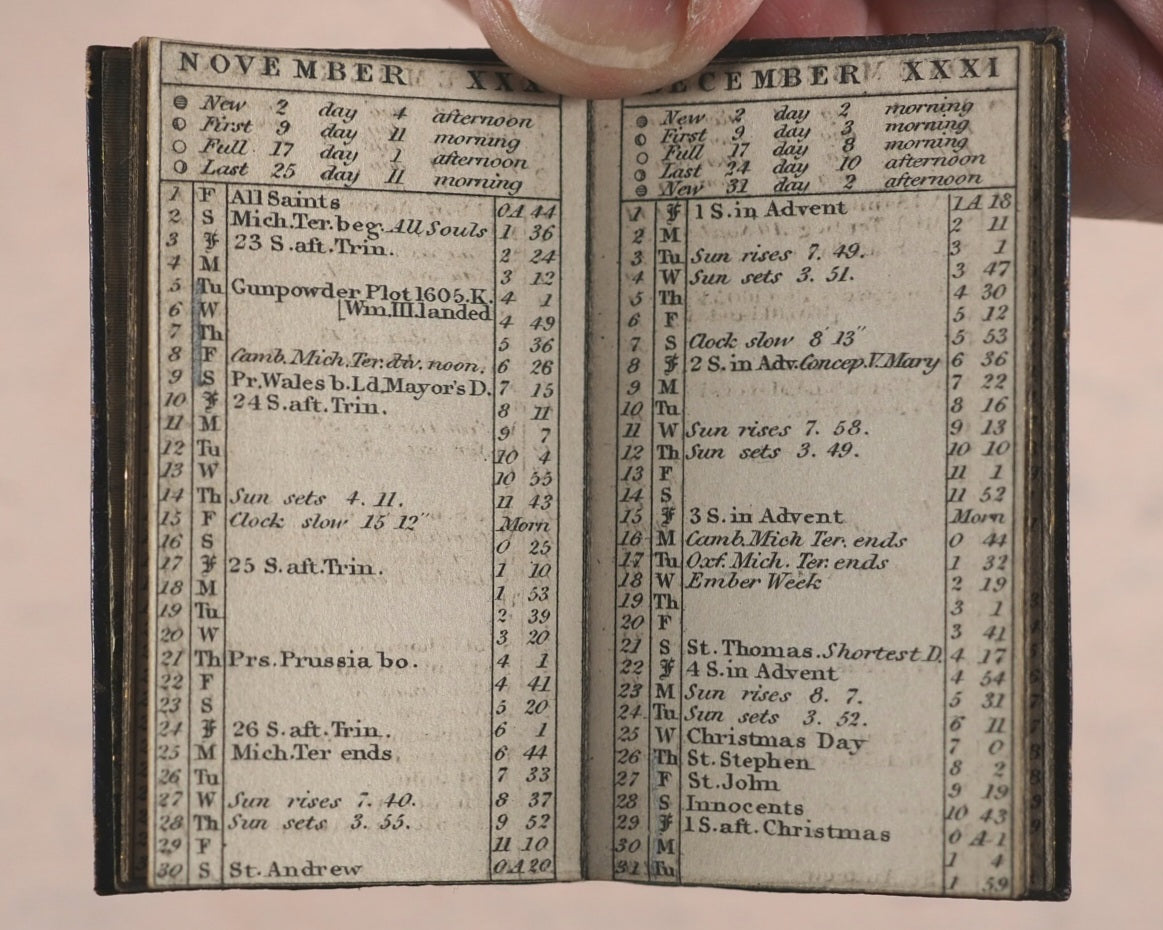 NOVEMBER XXX
New 2 day 4 afternoon
First 9 day 11 morning
Full 17 day 1 afternoon
Last 25 day 11 morning
1 F All Saints 0A44
2 S Mich.Ter.beg. All Souls 1 36
3 F 23 S.aft.Trin. 2 24
4 M 3 12
5 Tu Gunpowder Plot 1605.K. 4 1
6 W [Wm.III.landed 4 49
7 Th 5 36
8 F Camb.Mich.Ter.div.noon. 6 26
9 S Pr.Wales b.Ld.Mayor's D. 7 15
10 F 24 S.aft.Trin. 8 11
11 M 9 7
12 Tu 10 4
13 W 10 55
14 Th Sun sets 4. 11. 11 43
15 F Clock slow 15 12" Morn
16 S 0 25
17 F 25 S.aft.Trin. 1 10
18 M 1 53
19 Tu 2 39
20 W 3 20
21 Th Prs.Prussia bo. 4 1
22 F 4 41
23 S 5 20
24 F 26 S.aft.Trin. 6 1
25 M Mich.Ter ends 6 44
26 Tu 7 33
27 W Sun rises 7. 40. 8 37
28 Th Sun sets 3. 55. 9 52
29 F 11 10
30 S St.Andrew 0A20
ECEMBER XXXI
New 2 day 2 morning
First 9 day 3 morning
Full 17 day 8 morning
Last 24 day 10 afternoon
New 31 day 2 afternoon
1 F 1 S.in Advent 1A18
2 M 2 11
3 Tu Sun rises 7. 49. 3 1
4 W Sun sets 3. 51. 3 47
5 Th 4 30
6 F 5 12
7 S Clock slow 8' 13" 5 53
8 F 2 S.in Adv.Concep.V.Mary 6 36
9 M 7 22
10 Tu 8 16
11 W Sun rises 7. 58. 9 13
12 Th Sun sets 3. 49. 10 10
13 F 11 1
14 S 11 52
15 F 3 S.in Advent Morn
16 M Camb.Mich Ter. ends 0 44
17 Tu Oxf. Mich. Ter. ends 1 32
18 W Ember Week 2 19
19 Th 3 1
20 F 3 41
21 S St.Thomas.Shortest D. 4 17
22 F 4 S.in Advent 4 54
23 M Sun rises 8. 7. 5 31
24 Tu Sun sets 3. 52. 6 11
25 W Christmas Day 7 0
26 Th St.Stephen 8 2
27 F St.John 9 19
28 S Innocents 10 43
29 F 1 S.aft.Christmas 0A1
30 M 1 4
31 Tu 1 59